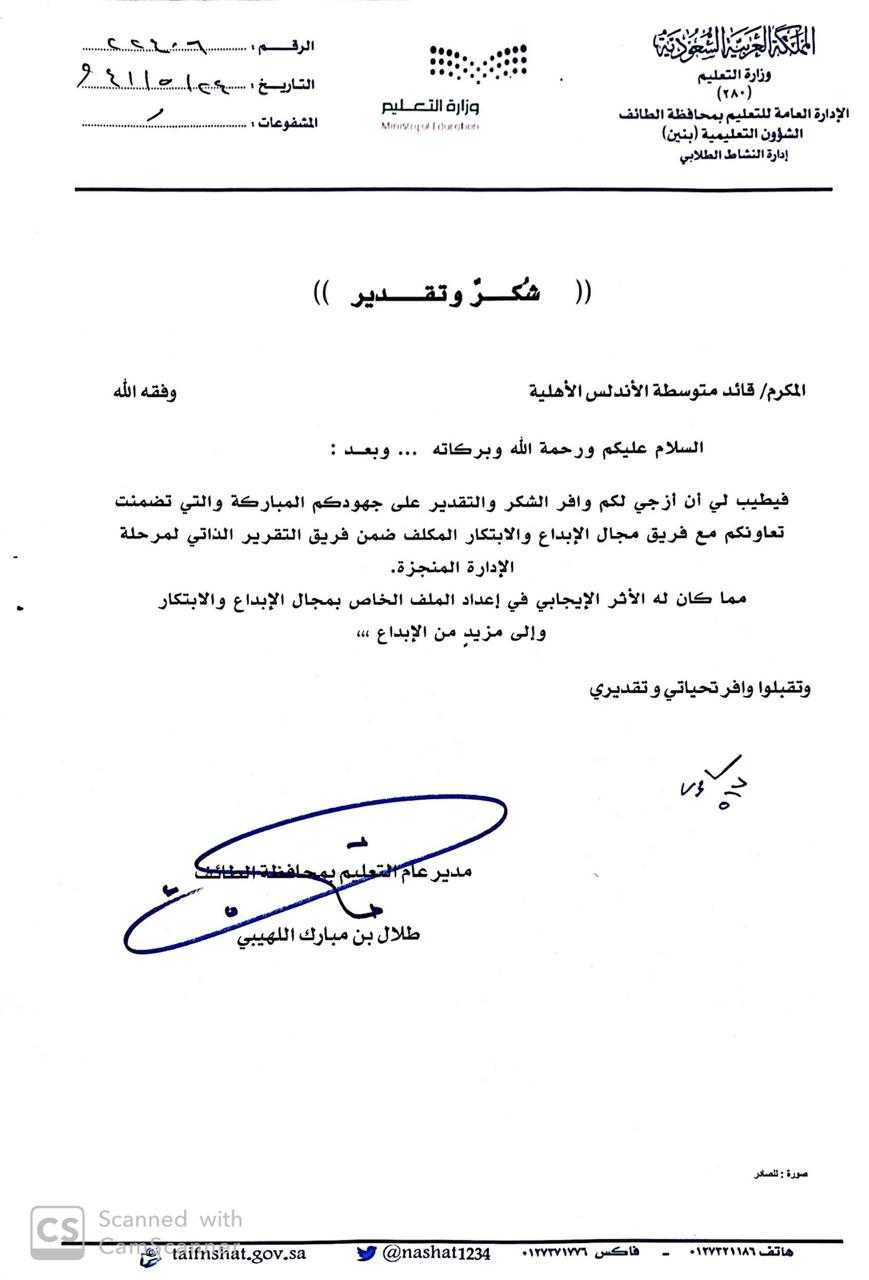 المملكة العربية السعودية
وزارة التعليم
(٢٨٠)
الإدارة العامة للتعليم بمحافظة الطائف
الشؤون التعليمية (بنين)
إدارة النشاط الطلابي
وزارة التعـــليم
Ministry of Education
الرقــم : ٢٢٤٠٦
التاريــخ :
المشفوعات :
(( شُكـــرٌ وتقـــدير ))
المكرم/ قائد متوسطة الأندلس الأهلية وفقه الله
السلام عليكم ورحمة الله وبركاته ... وبعـد :
فيطيب لي أن أزجي لكم وافر الشكر والتقدير على جهودكم المباركة والتي تضمنت
تعاونكم مع فريق مجال الإبداع والابتكار المكلف ضمن فريق التقرير الذاتي لمرحلة
الإدارة المنجزة.
مما كان له الأثر الإيجابي في إعداد الملف الخاص بمجال الإبداع والابتكار
وإلى مزيدٍ من الإبداع ،،،
وتقبلوا وافر تحياتي و تقديري
مدير عام التعليم بمحافظة الطائف
طلال بن مبارك اللهيبي
صورة : للصادر
هاتف ٠١٢٧٣٢١١٨٦ - فاكس ٠١٢٧٣٧١٧٧٦ @nashat1234 taifnshat.gov.sa
CS Scanned with
CamScanner